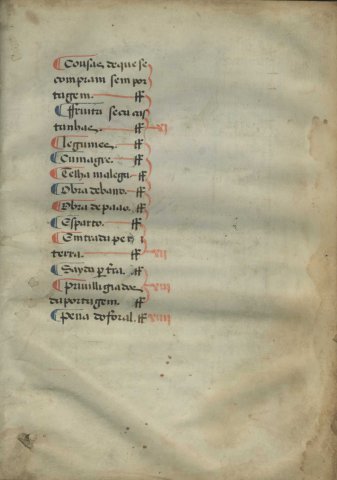 ¶ Cousas de que se
compram sem por
tagem. ff
¶ ffruita seca cas
tanhas. ff xi
¶ legumes. ff
¶ Cumagre. ff
¶ Telha malega ff
¶ Obra de barro. ff
¶ Obra de paao. ff
¶ Esparto. ff
¶ Emtrada per
terra. ff xii
¶ Sayda per tr̃a. ff
¶ Privilligiados xiii
da portagem. ff
¶ Pena do foral. ff xiiii